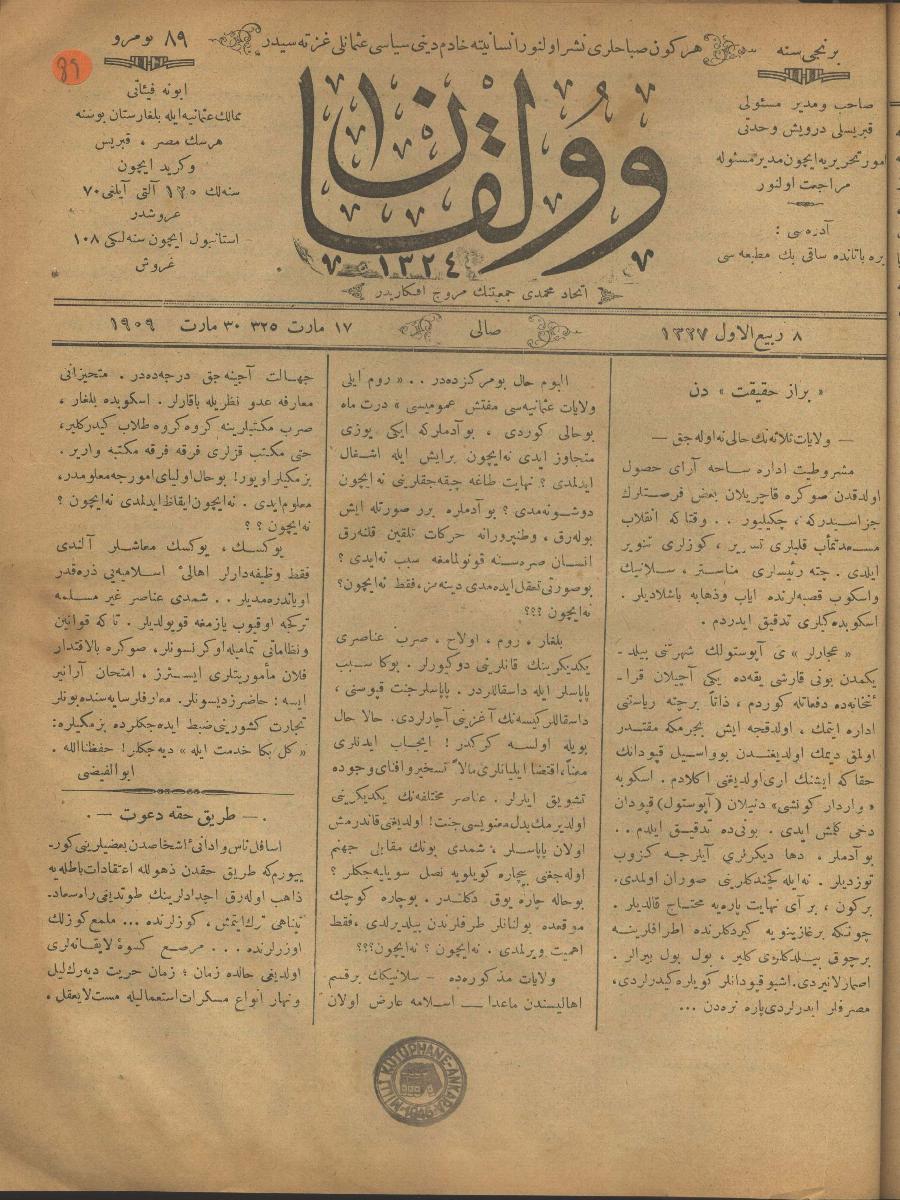 برنجی سنه
هر كون صباحلری نشر اولنور انسانیته خادم دینی سیاسی عثمانلی غزته سیدر
٨٩ نومرو
89
صاحب و مدیر مسئولی
قبریسلی درویش وحدتی
امور تحریریه ایچون مدیر مسئوله
مراجعت اولنور
آدره سی :
یره باتانده ساقی بك مطبعه سی
وولقان
١٣٢٤
اتحاد محمدی جمعیتنك مروج افكاریدر
ابونه فیئاتی
ممالك عثمانیه ایله بلغارستان بوسنه
هرسك مصر ، قبریس
و كرید ایچون
سنه لك ١٢٥ آلتی آیلغی ٧٠
غروشدر
استانبول ایچون سنه لكی ١٠٨
غروش
٨ ربیع الاول ١٣٢٧
صالی
١٧ مارت ٣٢٥ ٣٠ مارت ١٩٠٩
« براز حقیقت » دن
— ولایات ثلاثه نك حالی نه اوله جق —
مشروطیت اداره ساحه آرای حصول
اولدقدن صوكره قاچریلان بعض فرصتلرك
جزاسیدركه ، چكیلیور . . وقتاكه انقلاب
قلبلری ، كوزلری تنویر
ایلدی . چته رئیسلری مناستر ، سلانیك
واسكوب قصبه لرنده ایاب وذهابه باشلادیلر .
اسكوبده كیلری تدقیق ایدردم .
« عجارلر » ی آپوستولك شهرتنی بیلد-
یكمدن بونی قارشی یقه ده یكی آچیلان قرا-
ئتخانه ده دفعاتله كوردم ، ذاتاً برچته ریاستنی
اداره ایتمك ، اولدقجه ایش بجرمكه مقتدر
اولمق دیمك اولدیغندن بوواسیل قپودانك
حقاكه ایشنك اری اولدیغنی اكلادم . اسكوبه
« واردار كونشی » دنیلان (آپوستول) قپودان
دخی كلمش ایدی . بونی ده تدقیق ایلدم . .
بو آدملر ، دها دیكرلری آیلرجه كزوب
توزدیلر . نه ایله كچندكلرینی صوران اولمدی.
بركون ، بر آی نهایت پاره یه محتاج قالدیلر .
چونكه برغازینویه كیردكلرنده اطرافلرینه
برچوق بیلدكلری كلیر ، بول بول بیرالر .
اصمارلانیردی. اشبو قپودانلر كویلره كیدرلردی،
مصرفلر ایدرلردی پاره نره دن ...
الیوم حال بومركزده در . . « روم ایلی
ولایات عثمانیه سی مفتش عمومیسی » درت ماه
بوحالی كوردی ، بو آدملركه ایكی یوزی
متجاوز ایدی نه ایچون برایش ایله اشغال
ایدلمدی ؟ نهایت طاغه چیقه جقلرینی نه ایچون
دوشونه مدی ؟ بو آدملره برر صورتله ایش
بوله رق ، وطنپرورانه حركات تلقین قلنه رق
انسان صره سنه قونولمامغه سبب نه ایدی ؟
بوصورتی تعقل ایده مدی دینه مز ، فقط نه ایچون؟
نه ایچون ؟؟؟
بلغار ، روم ، اولاح ، صرب عناصری
یكدیكرینك قانلرینی دوكیورلر . بوكا سبب
پاپاسلر ایله داسقاللردر . پاپاسلر جنت قپوسنی ،
داسقاللر كیسه نك آغزینی آچارلردی. حالا حال
بویله اولسه كركدر ! ایجاب ایدنلری
معناً ، اقتضا ایلیانلری مالاً تسخیر وافنای وجوده
تشویق ایلرلر . عناصر مختلفه نك یكدیكرینی
اولدیرمك بدل معنویسی جنت! اولدیغنی قاندرمش
اولان پاپاسلر ، شمدی بونك مقابلی جهنم
اوله جغنی بیچاره كویلویه نصل سویلیه جكلر ؟
بوحاله چاره یوق دكلدر . بوچاره كوچك
موقعده بولنانلر طرفلرندن بیلدیرلدی ، فقط
اهمیت ویرلمدی . نه ایچون ؟ نه ایچون؟؟؟
ولایات مذكوره ده — سلانیكك برقسم
اهالیسندن ماعدا — اسلامه عارض اولان
جهالت آجینه جق درجه ده در . متحیزانی
معارفه عدو نظریله باقارلر . اسكوبده بلغار ،
صرب مكتبلرینه كروه كروه طلاب كیدركلیر ،
حتی مكتب قزلری فرقه فرقه مكتبه واریر .
بزمكیلر اویور! بوحال اولیای امورجه معلومدر،
معلوم ایدی . نه ایچون ایقاظ ایدلمدی نه ایچون ؟
نه ایچون ؟ ؟
یوكسك ، یوكسك معاشلر آلندی
فقط وظیفه دارلر اهالئ اسلامیه یی ذره قدر
اویاندره مدیلر . . شمدی عناصر غیر مسلمه
تركجه اوقیوب یازمغه قویولدیلر . تا كه قوانین
ونظاماتی تمامیله اوكرنسونلر، صوكره بالاقتدار
فلان مأموریتلری ایسترز . امتحان آرانیر
ایسه : حاضرز دیسونلر. معارفلر سایه سنده بونلر
تجارت كشورینی ضبط ایده جكلرده بزمكیلره:
« كل بكا خدمت ایله » دیه جكلر! حفظنا الله .
ابوالفیضی
— طریق حقه دعوت —
اسافل ناس وادانئ اشخاصدن بعضیلرینی كور-
یورم كه طریق حقدن ذهول له اعتقادات باطله یه
ذاهب اوله رق اجدادلرینك طوتدیغی راه سعاد-
پناهی ترك ایتمش ، كوزلرنده ... ملمع كوزلك
اوزرلرنده ... مرصع كسوۀ لایقانه لری
اولدیغی حالده زمان ؛ زمان حریت دیه رك لیل
ونهار انواع مسكرات استعمالیله مست لایعقل ،
MİLLİ KÜTÜPHANE-ANKARA
1946